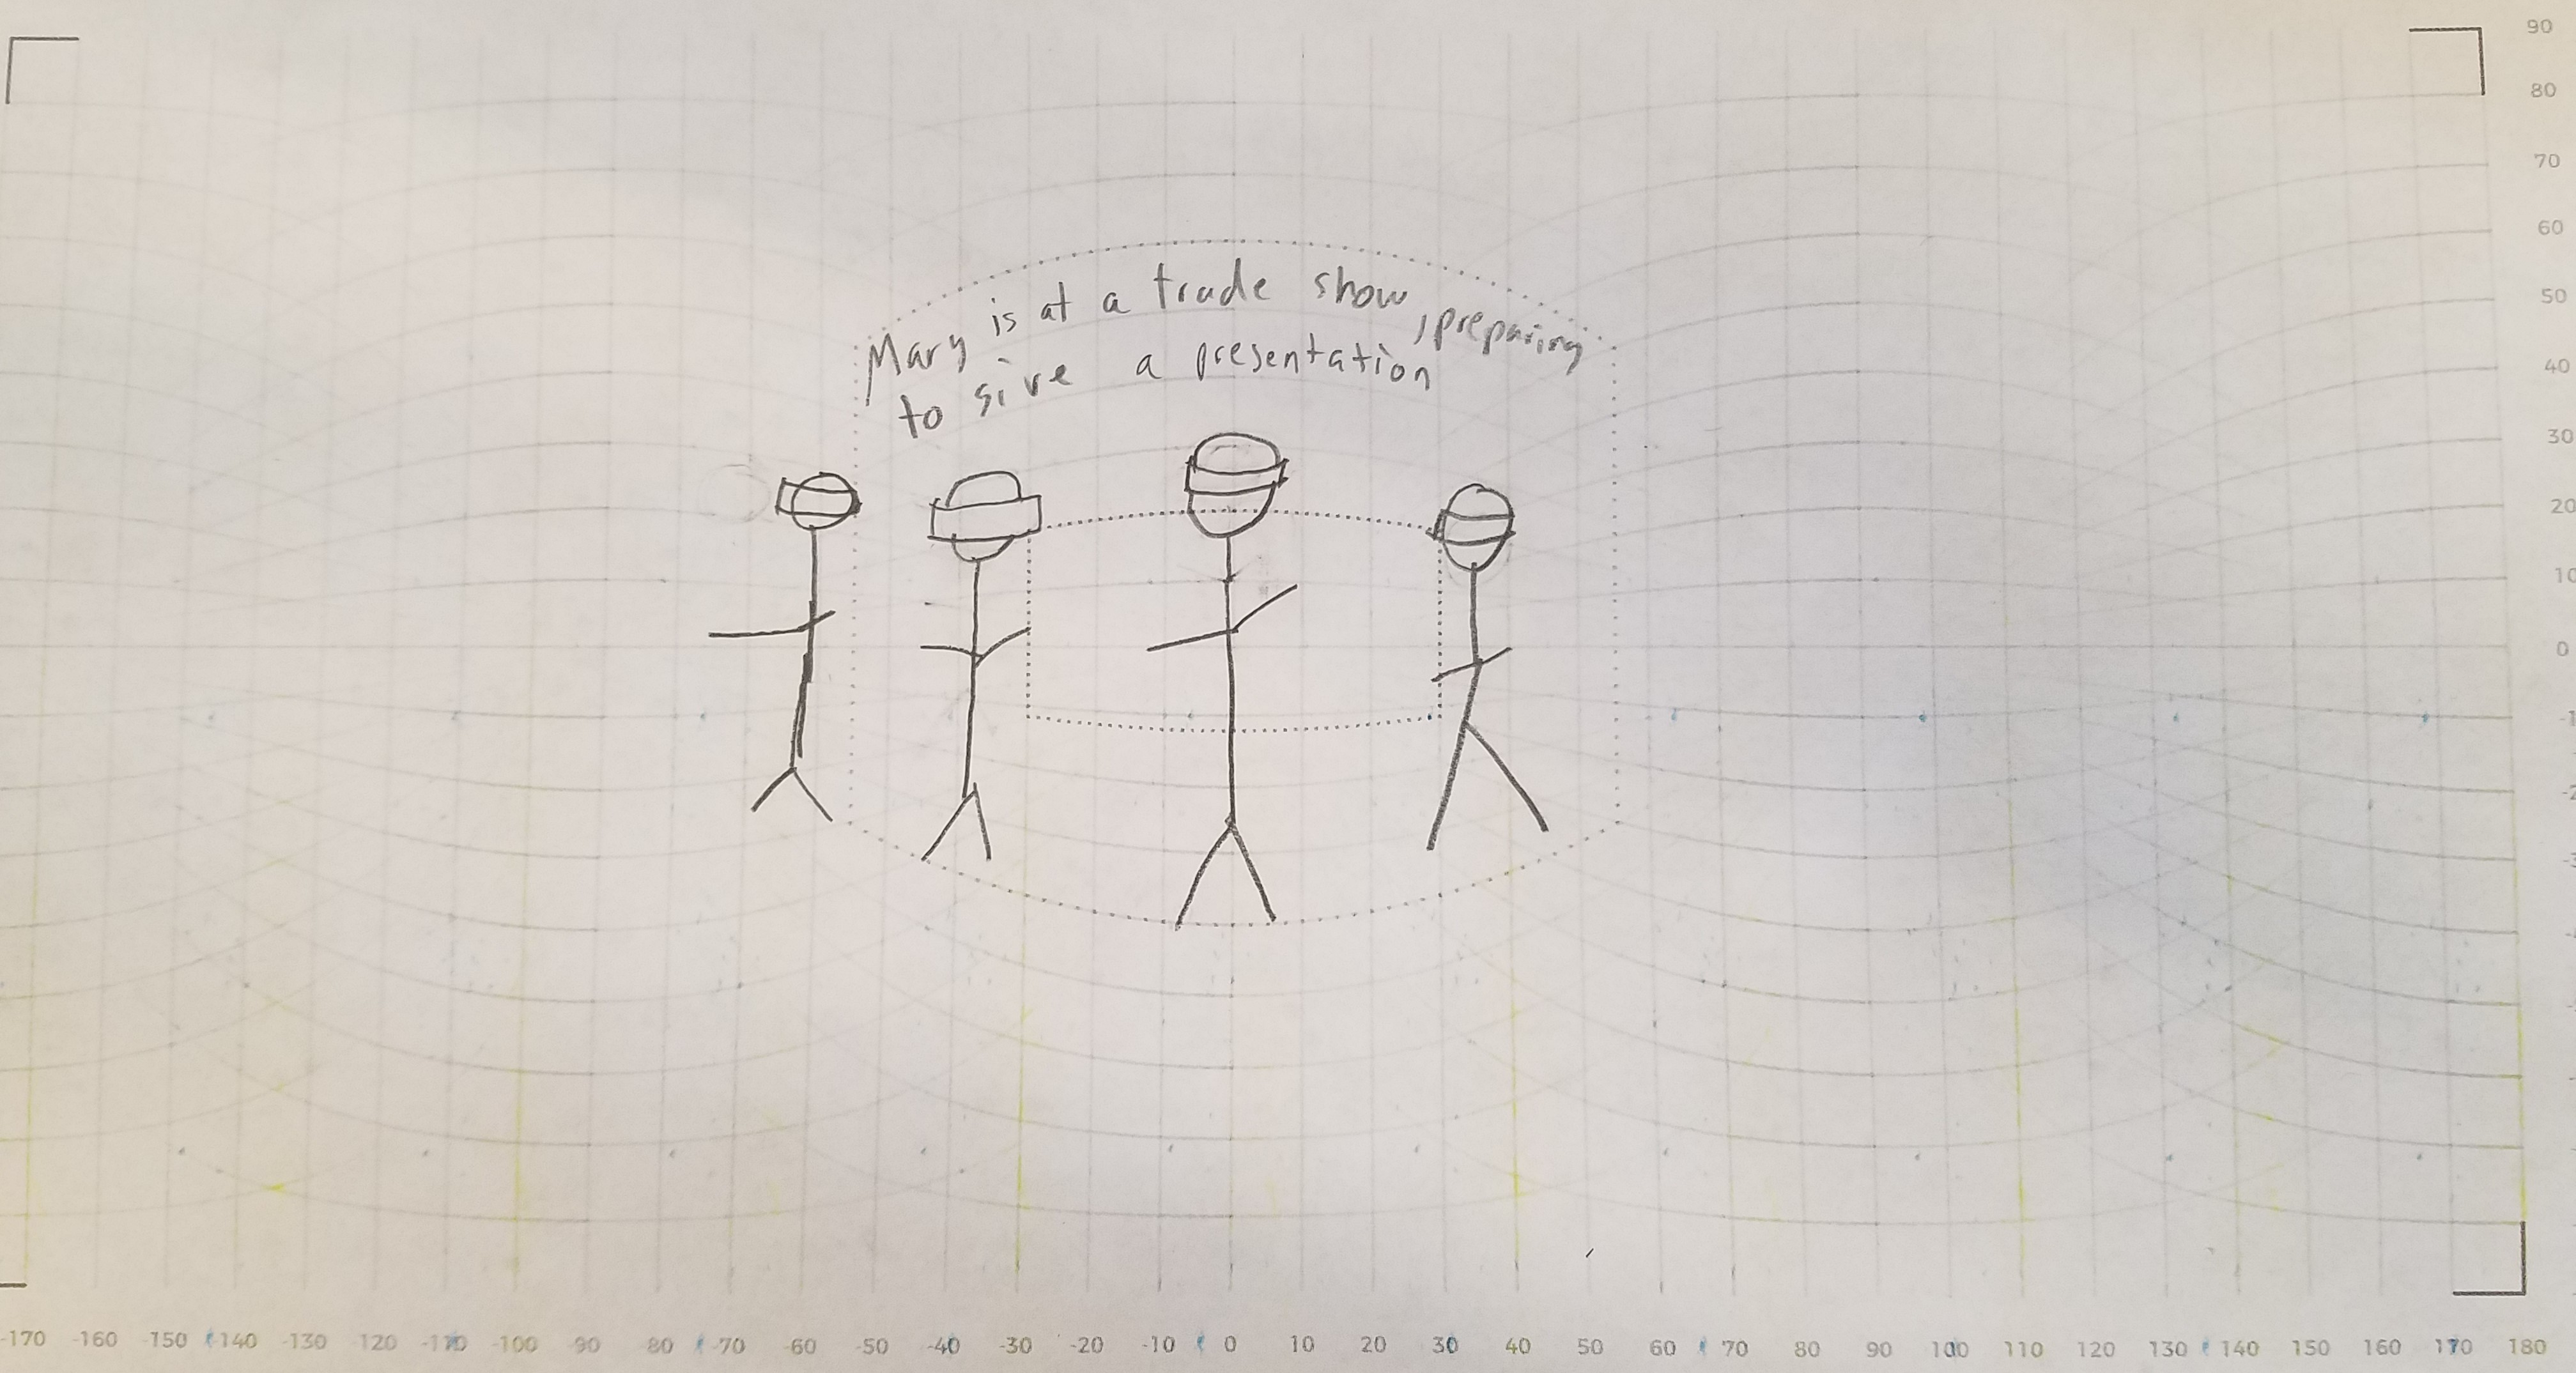 Mary is at a trade show, preparing
to give a presentation
90
80
70
60
50
40
30
20
10
0
-1
-2
-3
-170 -160 -150 -140 -130 -120 -110 -100 -90 -80 -70 -60 -50 -40 -30 -20 -10 0 10 20 30 40 50 60 70 80 90 100 110 120 130 140 150 160 170 180